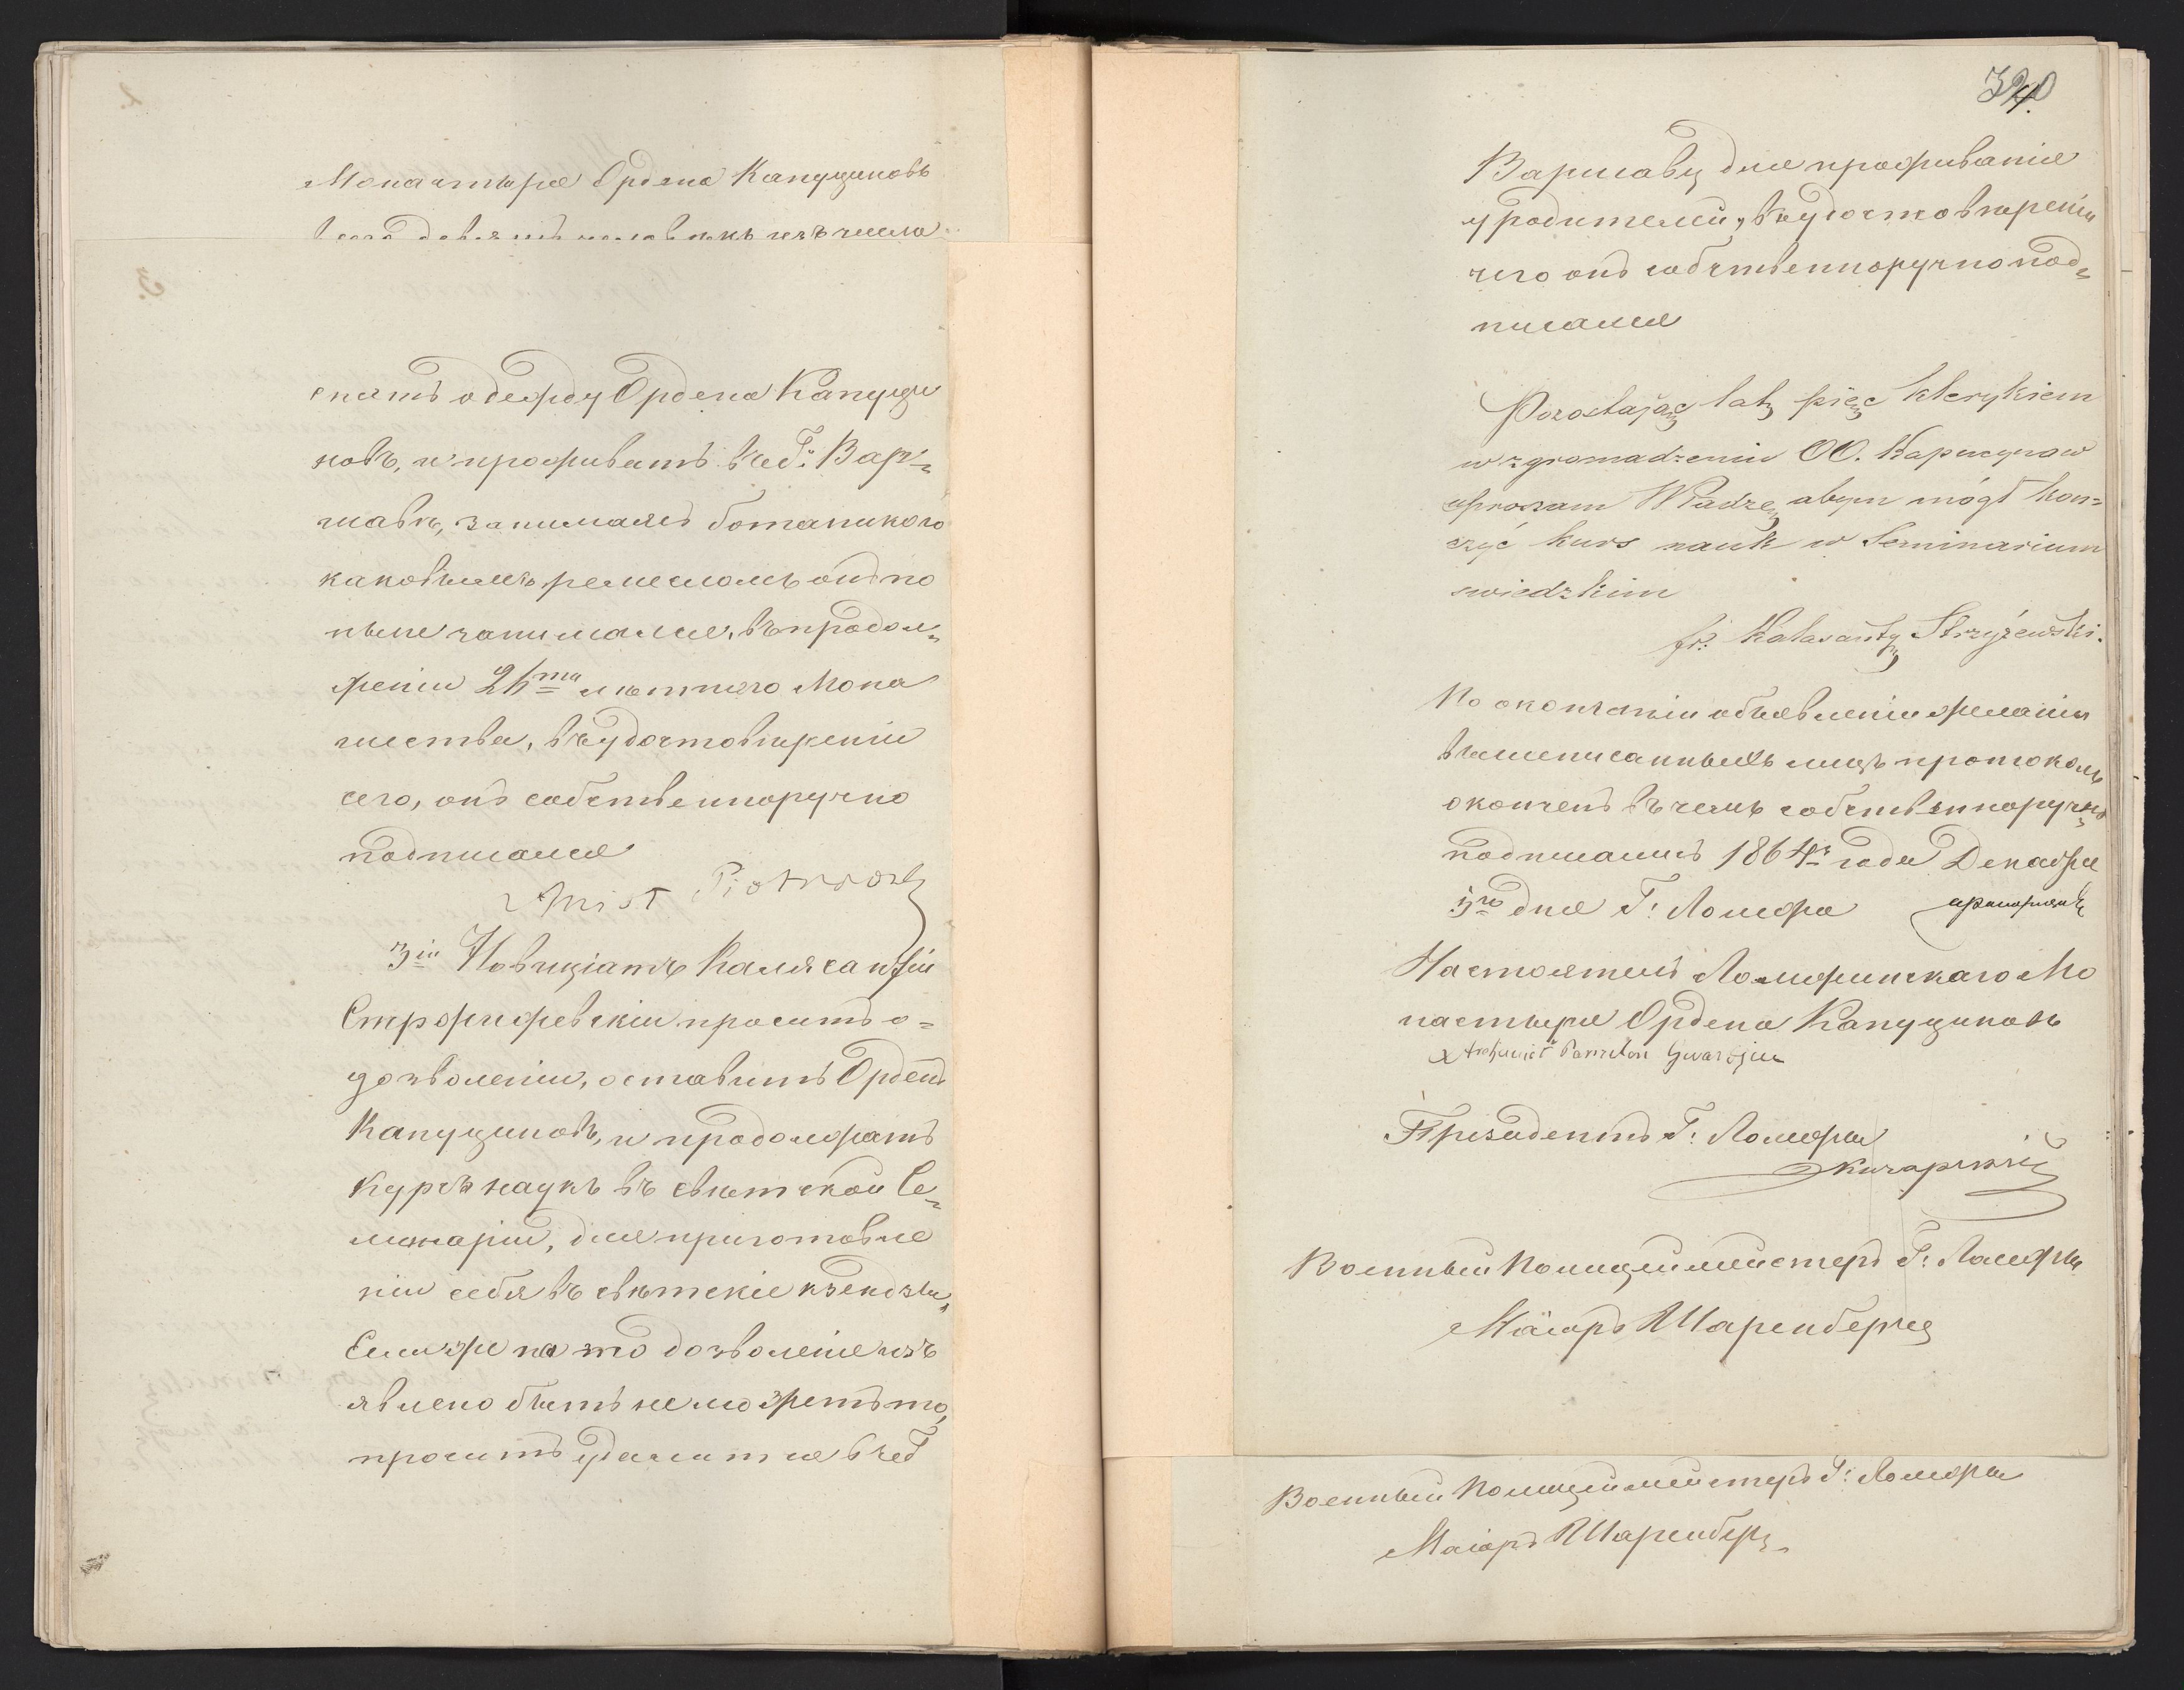 Монастыря Ордена Капуциновъ
всего девять человѣкъ изъ числа
снять одежду Ордена Капуци
новъ, и проживать въ Г. Вар-
шавѣ, занимаясь ботаникого
каковымъ ремесломъ онъ по
ныне занимался, въ продол-
женіи 26ти лѣтнего Мона
шества, въ удостовѣреніи
сего, онъ собственноручно
подписался
3ій Новиціатъ Калясантій
Стржижевскій проситъ о-
дозволеніи, оставить Орденъ
Капуциновъ, и продолжать
Курсъ наукъ въ свѣтской Се-
минаріи, для приготовле
нія себя въ свѣтскіе ксендзы,
Если же на то дозволеніе изъ
явлено быть не можетъ то,
проситъ удалится въ Г
320
Варшаву для проживанія
у родителей, въ удостовѣреніи
чего онъ собственноручно под-
писался
Pozostając laty pięc klerykiem
w zgromadzeniu OO. Kapucynow
upraszam Władzę abym mógł koń=
czyć kurs nauk w Seminarium
swiedzkim
fr. Kalasanty Strzyżewski.
По окончаніи объявленіи желанія
вышеписанныхъ лицъ протоколъ
оконченъ въ чемъ собственноручно
подписались 1864го года Декабря
дня Г. Ломжа
Настоятель Ломжинскаго Мо
настыря Ордена Капуциновъ
X Gwardjan
Президентъ Г. Ломжи
Военный Полицеймейстеръ Г. Ломжи
Маіоръ Шаренбергъ
Военный Полицеймейстеръ Г. Ломжи
Маіоръ Шаренбергъ